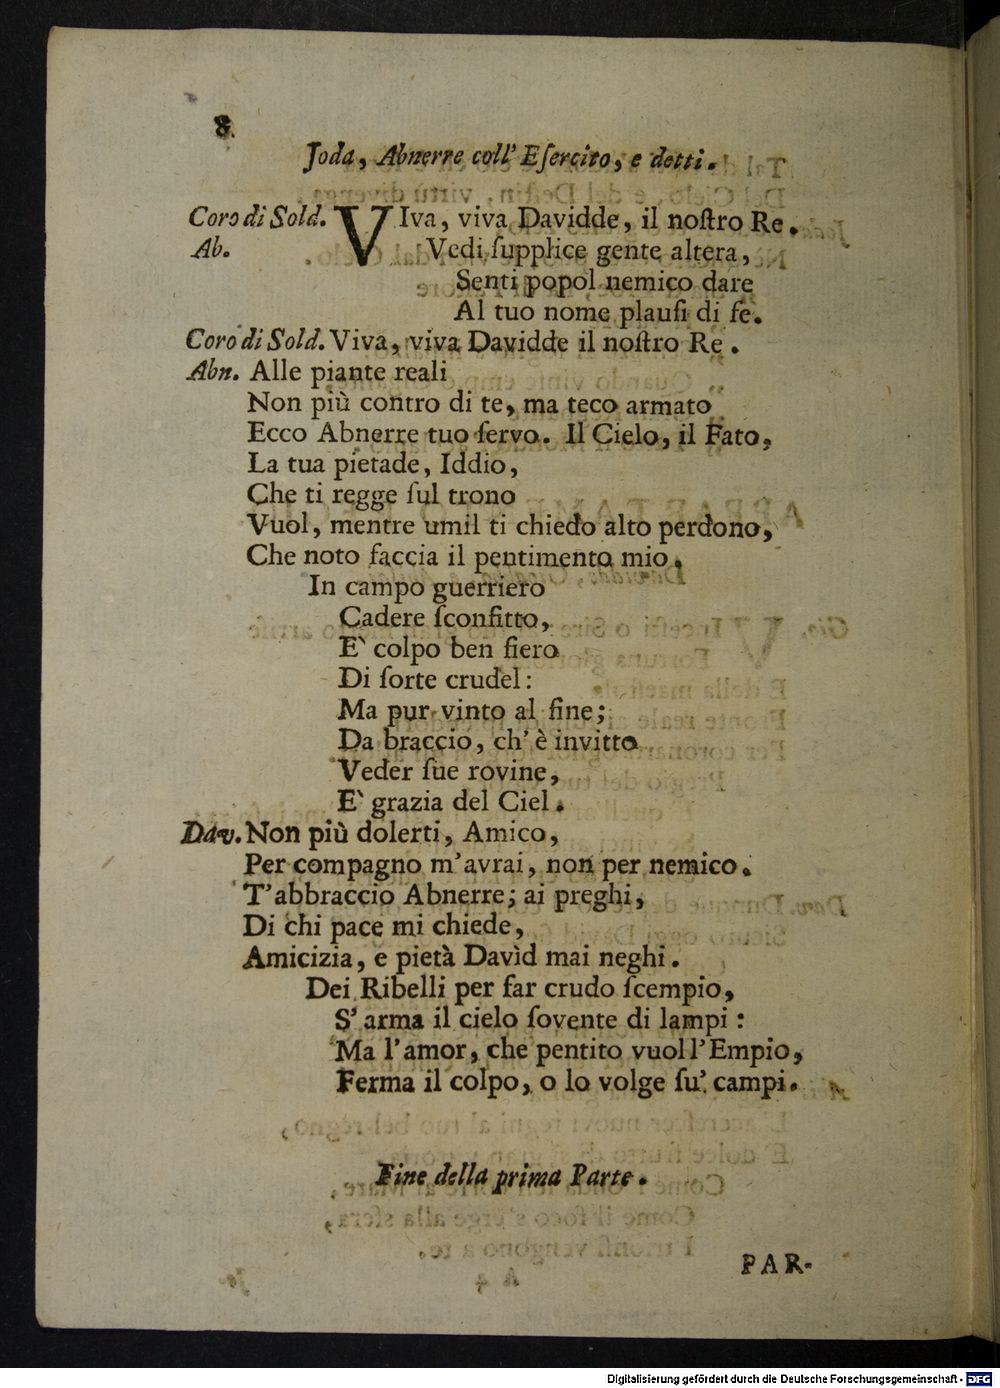 8.
Joda, Abnerre coll' Eſercito, e detti.
Coro di Sold. VIva, viva Davidde, il noſtro Re.
Ab. Vedi ſupplice gente altera,
Senti popol nemico dare
Al tuo nome plauſi di fè.
Coro di Sold. Viva, viva Davidde il noſtro Re.
Abn. Alle piante reali
Non più contro di te, ma teco armato
Ecco Abnerre tuo ſervo. Il Cielo, il Fato,
La tua pietade, Iddio,
Che ti regge ſul trono
Vuol, mentre umil ti chiedo alto perdono,
Che noto faccia il pentimento mio.
In campo guerriero
Cadere ſconfitto,
E' colpo ben fiero
Di ſorte crudel:
Ma pur vinto al fine;
Da braccio, ch' è invitto
Veder ſue rovine,
E' grazia del Ciel.
Dav. Non più dolerti, Amico,
Per compagno m'avrai, non per nemico.
T'abbraccio Abnerre; ai preghi,
Di chi pace mi chiede,
Amicizia, e pietà Davìd mai neghi.
Dei Ribelli per far crudo ſcempio,
S' arma il cielo ſovente di lampi:
Ma l'amor, che pentito vuol l'Empio,
Ferma il colpo, o lo volge ſu' campi.
Fine della prima Parte.
PAR-
Digitalisierung gefördert durch die Deutsche Forschungsgemeinschaft - DFG